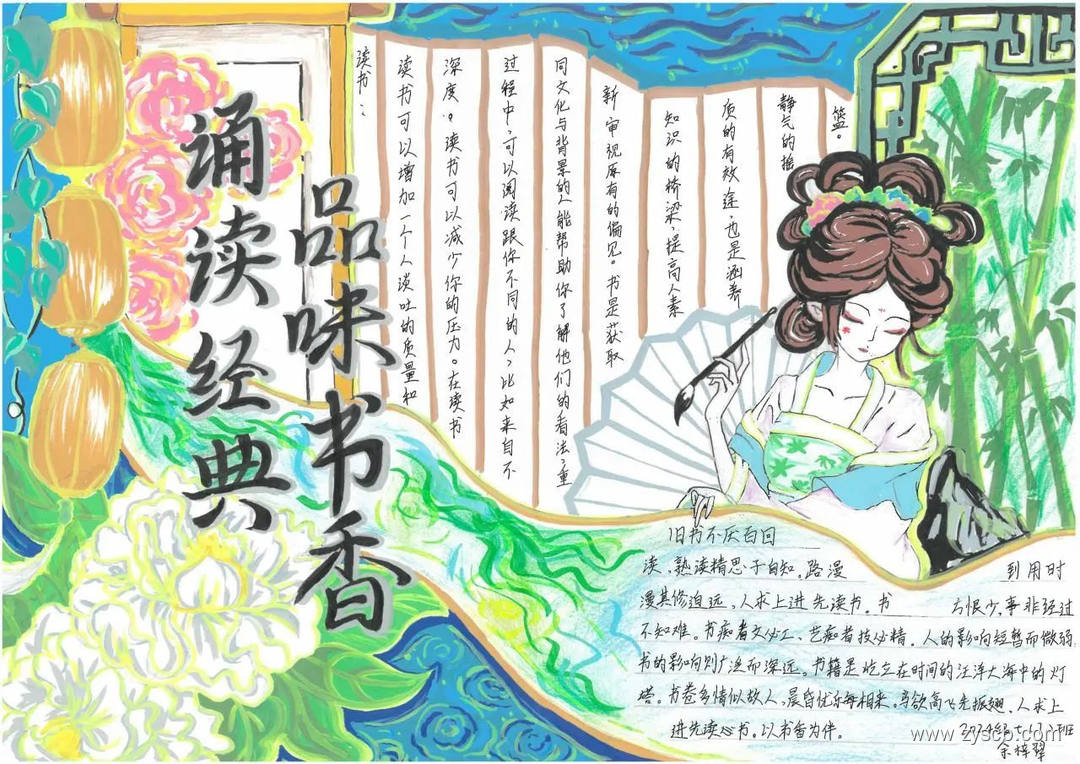 诵读经典
品味书香
读书：
读书可以增加一个人谈吐的质量和
深度。读书可以减少你的压力。在读书
过程中，可以阅读跟你不同的人，比如来自不
同文化与背景的人能帮助你了解他们的看法，重
新审视原有的偏见。书是获取
知识的桥梁，提高人素
质的有效途，也是涵养
静气的摇
篮。
旧书不厌百回
读，熟读精思子自知。路漫 到用时
漫其修迫远，人求上进先读书。书 方恨少，事非经过
不知难。书痴者文必工、艺痴者技必精。人的影响短暂而微弱
书的影响则广泛而深远。书籍是屹立在时间的汪洋大海中的灯
塔。书卷多情似故人，晨昏忧乐每相亲。鸟欲高飞先振翅，人求上
进先读书。以书香为伴。
班
余梓
www.zyscp.com